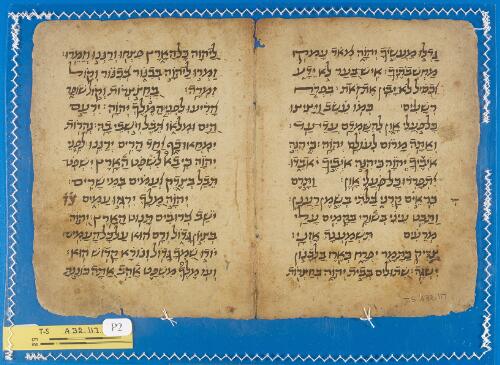 גדלו מעשיך יהוה מאד עמקו
מחשבתיך: איש בער לא ידע
וכסיל לא יבין את זאת: בפרח
רשעים כמו עשב ויציצו
כל פעלי און להשמדם עדי עד:
ואתה מרום לעולם יהוה: כי הנה
איביך יהוה כי הנה איביך יאבדו
יתפרדו כל פעלי און ותרם
כראים קרני בלתי בשמן רענן
ותבט עיני בשורי בקמים עלי
מרעים תשמענה אזני:
צדיק כתמר יפרח כארז בלבנון
ישגה שתולים בבית יהוה בחצרות
T-S A32.117
ליהוה כל הארץ פצחו ורננו וזמרו:
זמרו ליהוה בכנור בכנור וקול
זמרה: בחצצרות וקול שופר
הריעו לפני המלך יהוה: ירעם
הים ומלאו תבל וישבי בה: נהרות
ימחאו כף יחד הרים ירננו לפני
יהוה כי בא לשפט הארץ ישפט
תבל בצדק ועמים במישרים:
יהוה מלך ירגזו עמים
ישב כרובים תנוט הארץ: יהוה
בציון גדול ורם הוא על כל העמים:
יודו שמך גדול ונורא קדוש הוא:
ועז מלך משפט אהב אתה כוננת
T-S A32.117 P2